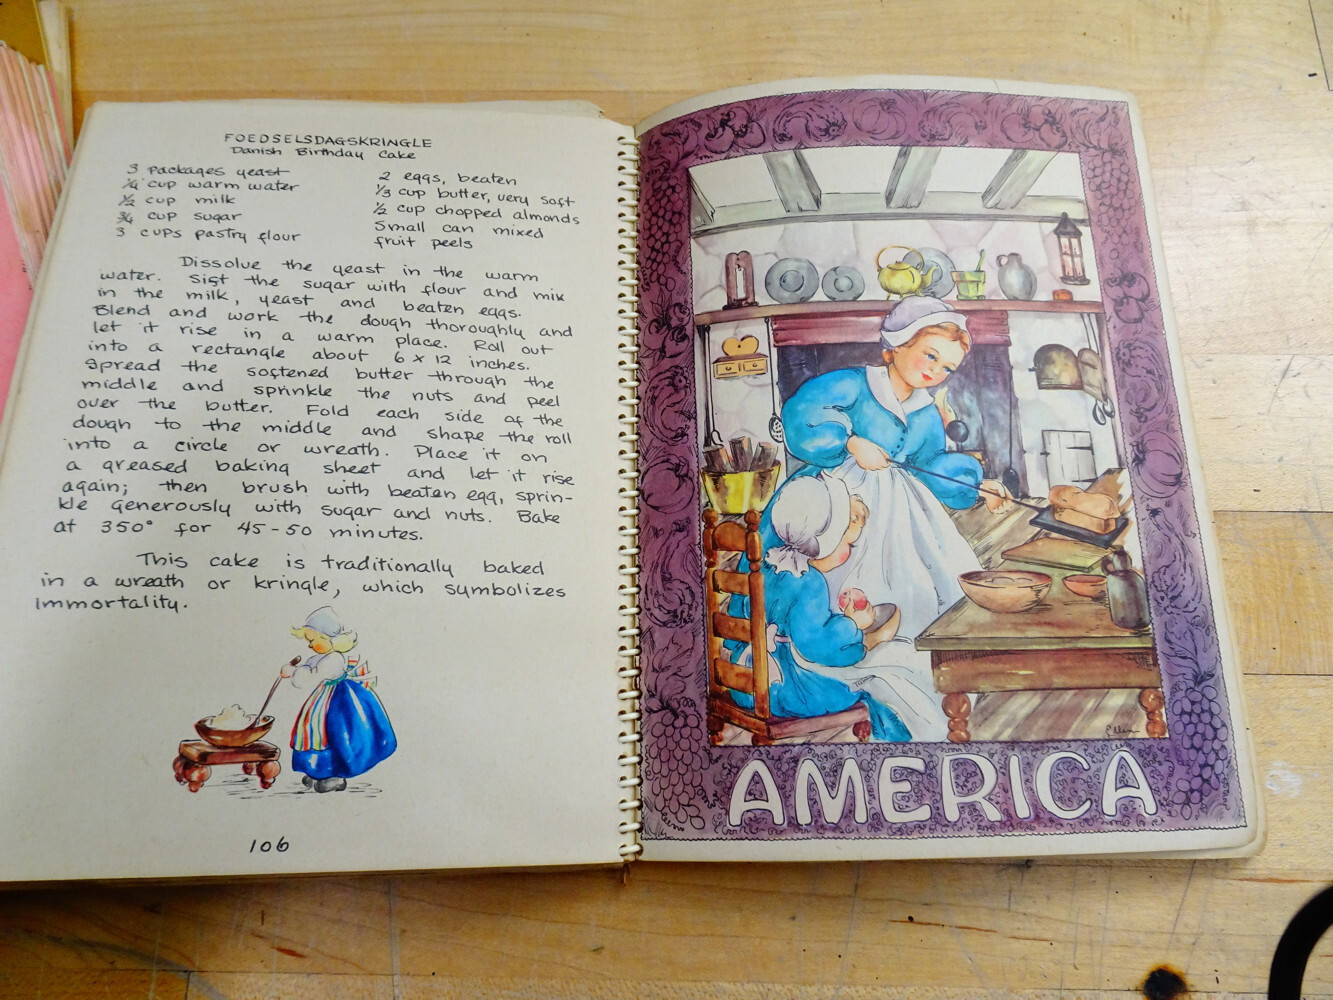 FOEDSELSDAGSKRINGLE
Danish Birthday Cake
3 packages yeast
1/4 cup warm water
1/2 cup milk
3/4 cup sugar
3 cups pastry flour
2 eggs, beaten
1/3 cup butter, very soft
1/2 cup chopped almonds
Small can mixed
fruit peels
Dissolve the yeast in the warm
water. Sift the sugar with flour and mix
in the milk, yeast and beaten eggs.
Blend and work the dough thoroughly and
let it rise in a warm place. Roll out
into a rectangle about 6 x 12 inches.
Spread the softened butter through the
middle and sprinkle the nuts and peel
over the butter. Fold each side of the
dough to the middle and shape the roll
into a circle or wreath. Place it on
a greased baking sheet and let it rise
again; then brush with beaten egg, sprin-
kle generously with sugar and nuts. Bake
at 350° for 45-50 minutes.
This cake is traditionally baked
in a wreath or kringle, which symbolizes
immortality.
106
Ellen
AMERICA